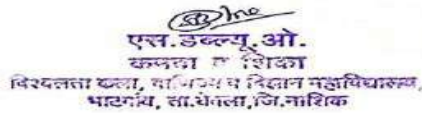 एस.डब्ल्यू.ओ.
कमवा व शिका
विश्वलता कला, वाणिज्य व विज्ञान महाविद्यालय,
भाटगांव, ता.येवला,जि.नाशिक